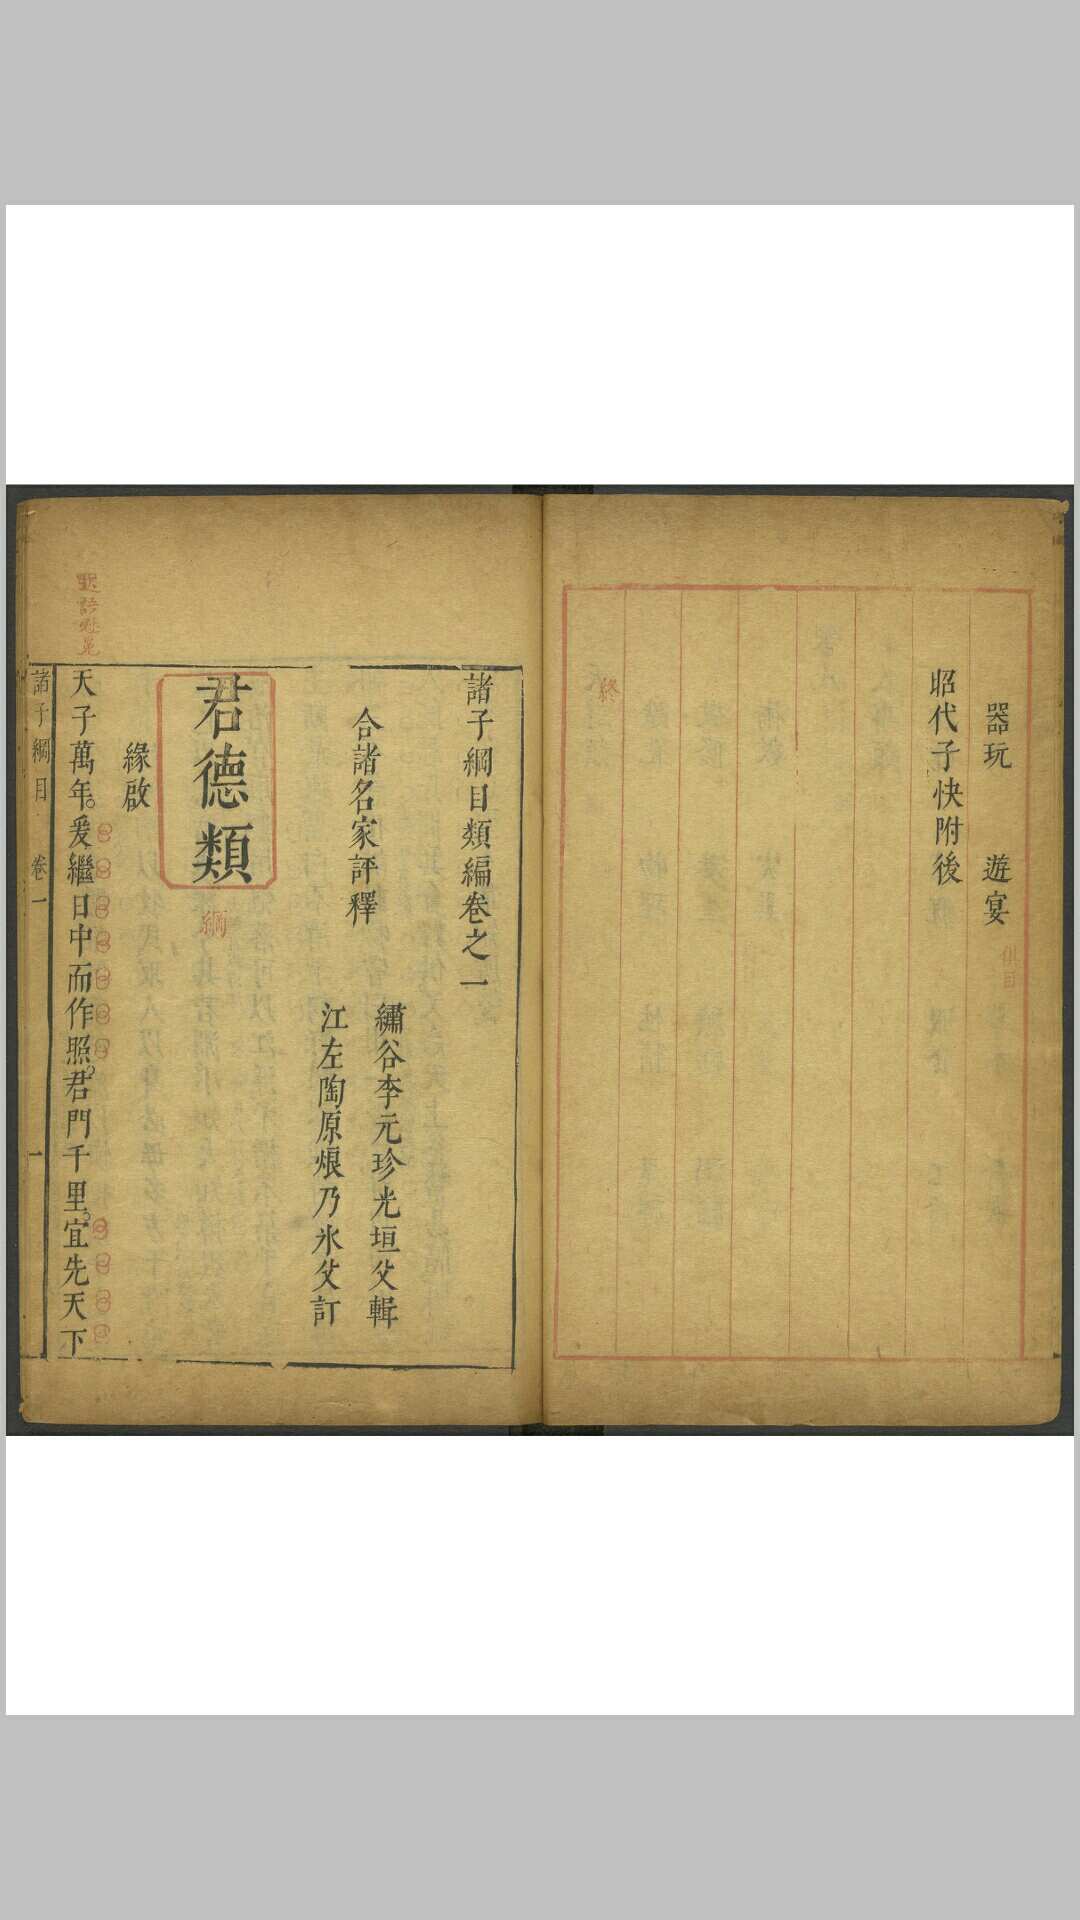 器玩 遊宴 俱目
昭代子快附後
終
諸子綱目類編卷之一
合諸名家評釋
繡谷李元珍光垣父輯
江左陶原烺乃氷父訂
君德類 綱
緣啟
天子萬年爰繼日中而作照君門千里宜先天下
諸子綱目 卷一 一